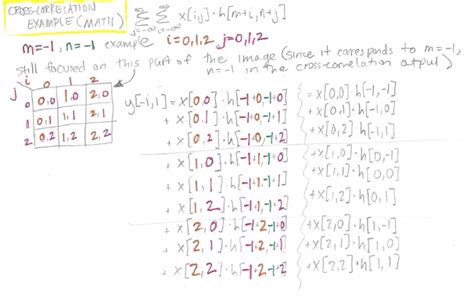 CROSS-CORRELATION
EXAMPLE (MATH)
∞ ∞
Σ Σ x[i,j]·h[m+i, n+j]
j=-∞ i=-∞
m=-1, n=-1 example i=0,1,2 j=0,1,2
still focused on this part of the image (since it corresponds to m=-1,
n=-1 in the cross-correlation output)
i 0 1 2
j 0 0,0 1,0 2,0
1 0,1 1,1 2,1
2 0,2 1,2 2,2
y[-1,1] = x[0,0]·h[-1+0,-1+0] = x[0,0]·h[-1,-1]
+ x[0,1]·h[-1+0,-1+1] + x[0,1]·h[-1,0]
+ x[0,2]·h[-1+0,-1+2] + x[0,2] h[-1,1]
+ x[1,0]·h[-1+1,-1+0] + x[1,0]·h[0,-1]
+ x[1,1]·h[-1+1,-1+1] + x[1,1]·h[0,0]
+ x[1,2]·h[-1+1,-1+2] + x[1,2]·h[0,1]
+ x[2,0]·h[-1+2,-1+0] + x[2,0]·h[1,-1]
+ x[2,1]·h[-1+2,-1+1] + x[2,1]·h[1,0]
+ x[2,2]·h[-1+2,-1+2] + x[2,2]·h[1,1]